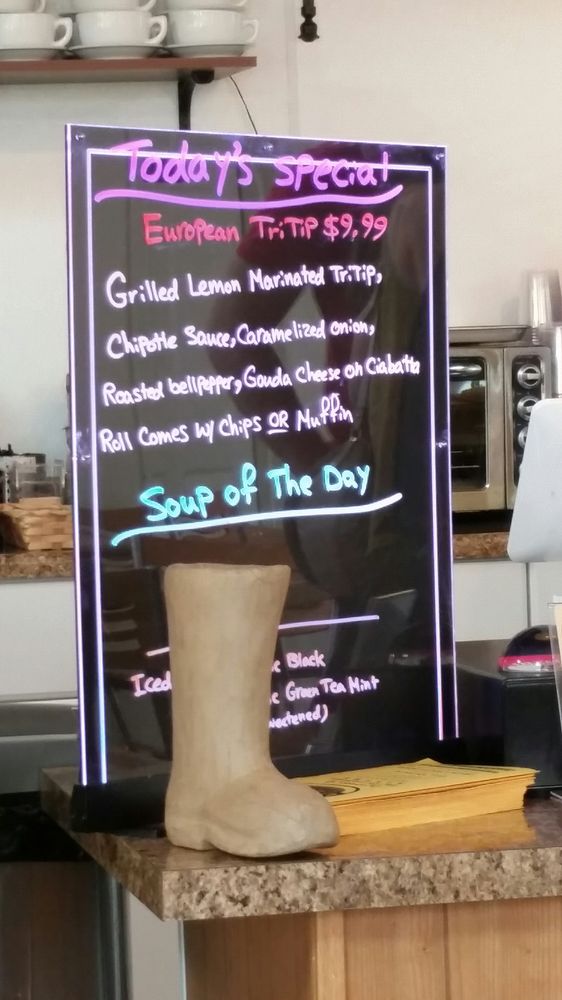 Today's Special
European TriTip $9.99
Grilled Lemon Marinated TriTip,
Chipotle Sauce, Caramelized onion,
Roasted bellpepper, Gouda Cheese on Ciabatta
Roll Comes w/ Chips OR Muffin
Soup of The Day
Iced Black
Green Tea Mint